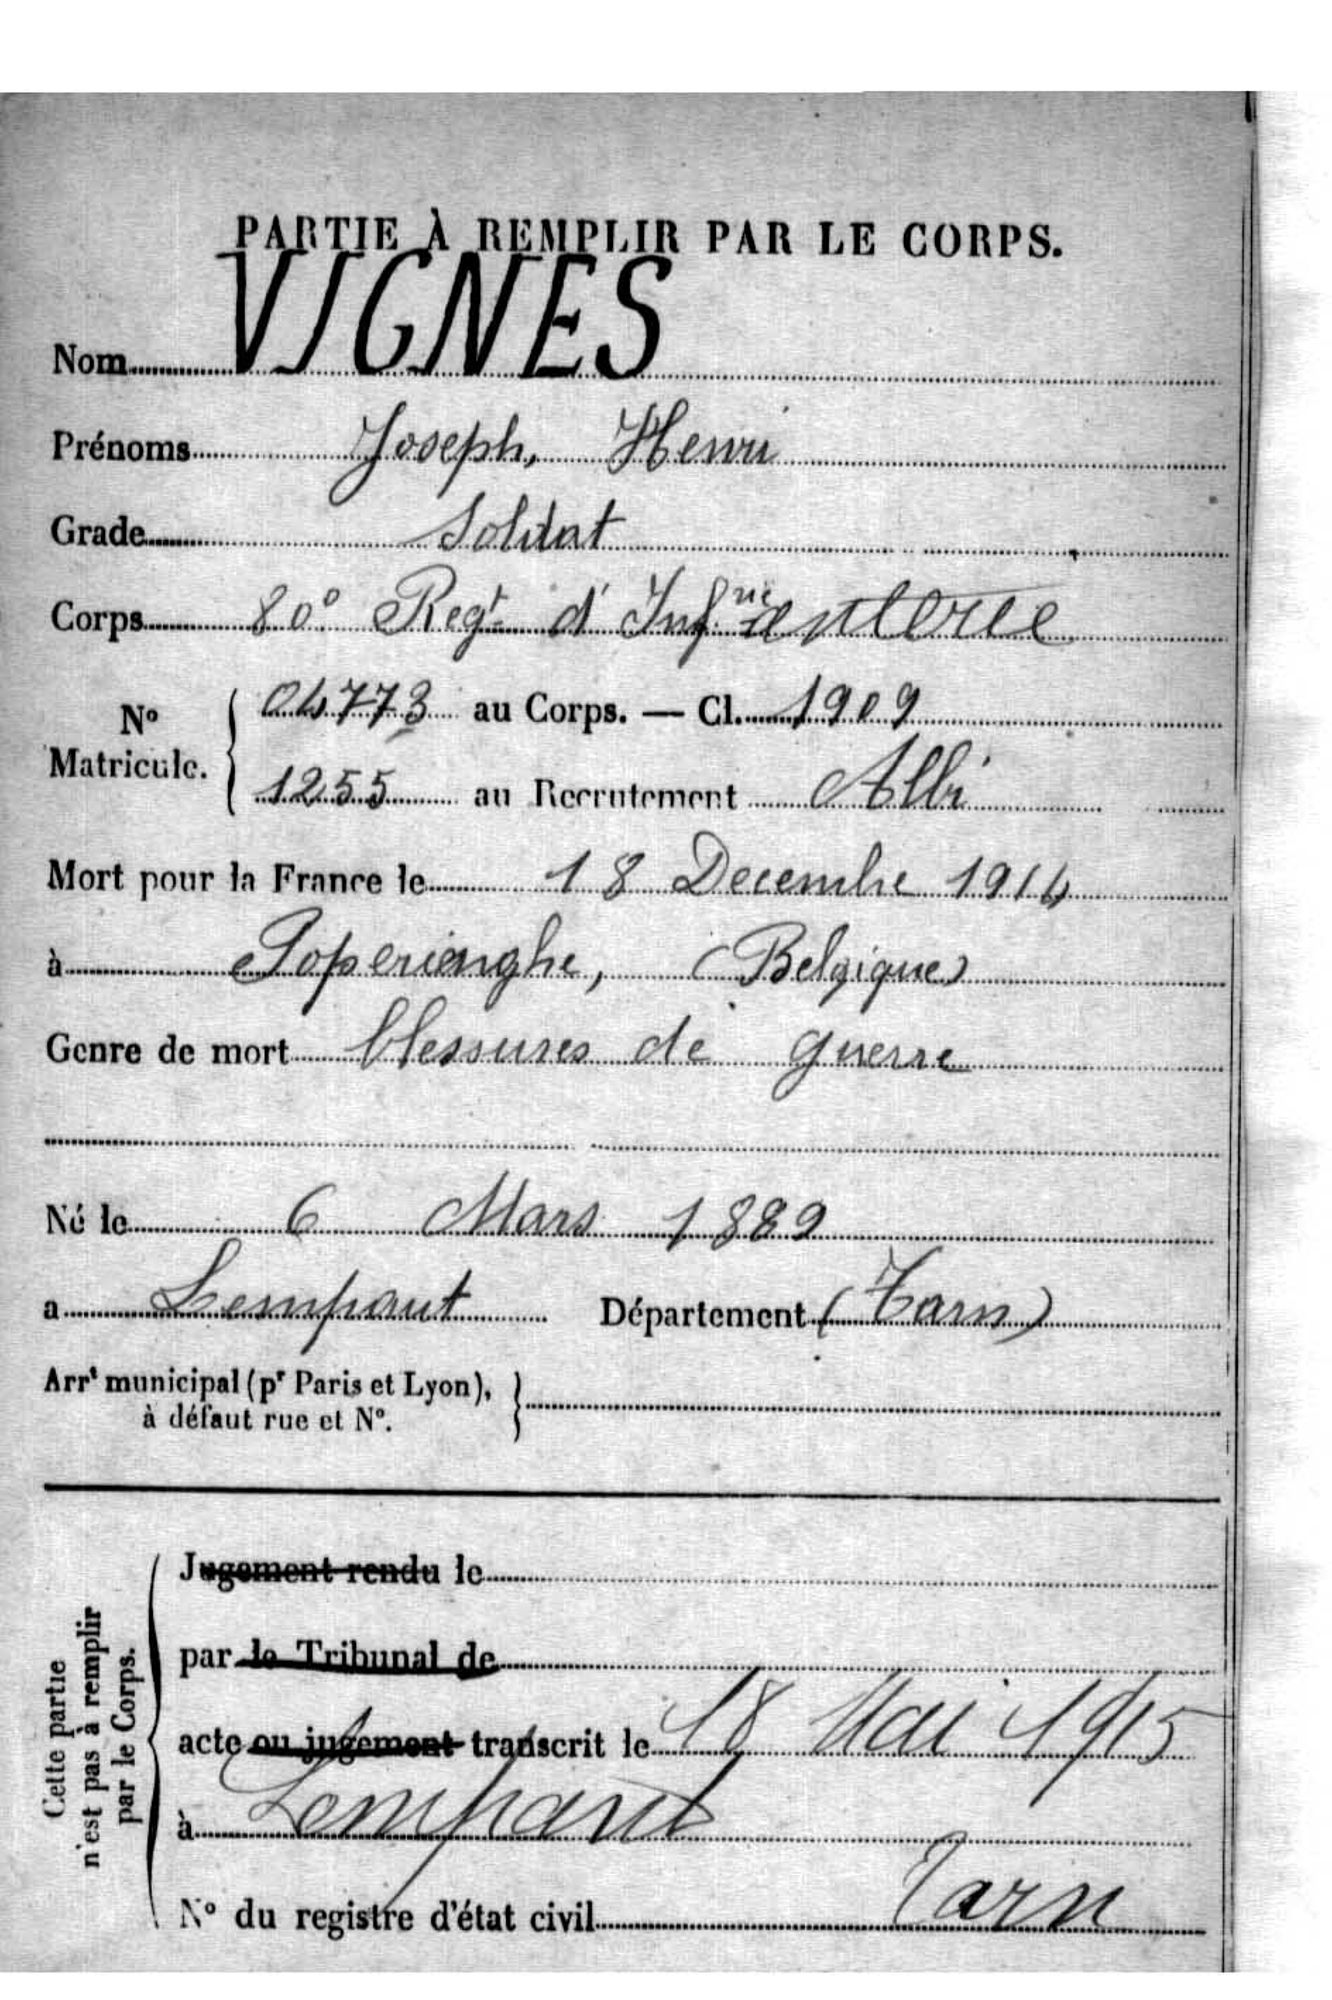 PARTIE À REMPLIR PAR LE CORPS.
Nom VIGNES
Prénoms Joseph, Henri
Grade Soldat
Corps 80° Regt d'Inf rie anterie
N° Matricule. { 04773 au Corps. — Cl. 1909
1255 au Recrutement Albi
Mort pour la France le 18 Decembre 1914
à Poperienghe, (Belgique)
Genre de mort blessures de guerre
Né le 6 Mars 1889
à Lempaut Département (Tarn)
Arrt municipal (pr Paris et Lyon),
à défaut rue et N°.
Cette partie
n'est pas à remplir
par le Corps.
Jugement rendu le
par le Tribunal de
acte ou jugement transcrit le 18 Mai 1915
à Lempaut
Tarn
N° du registre d'état civil